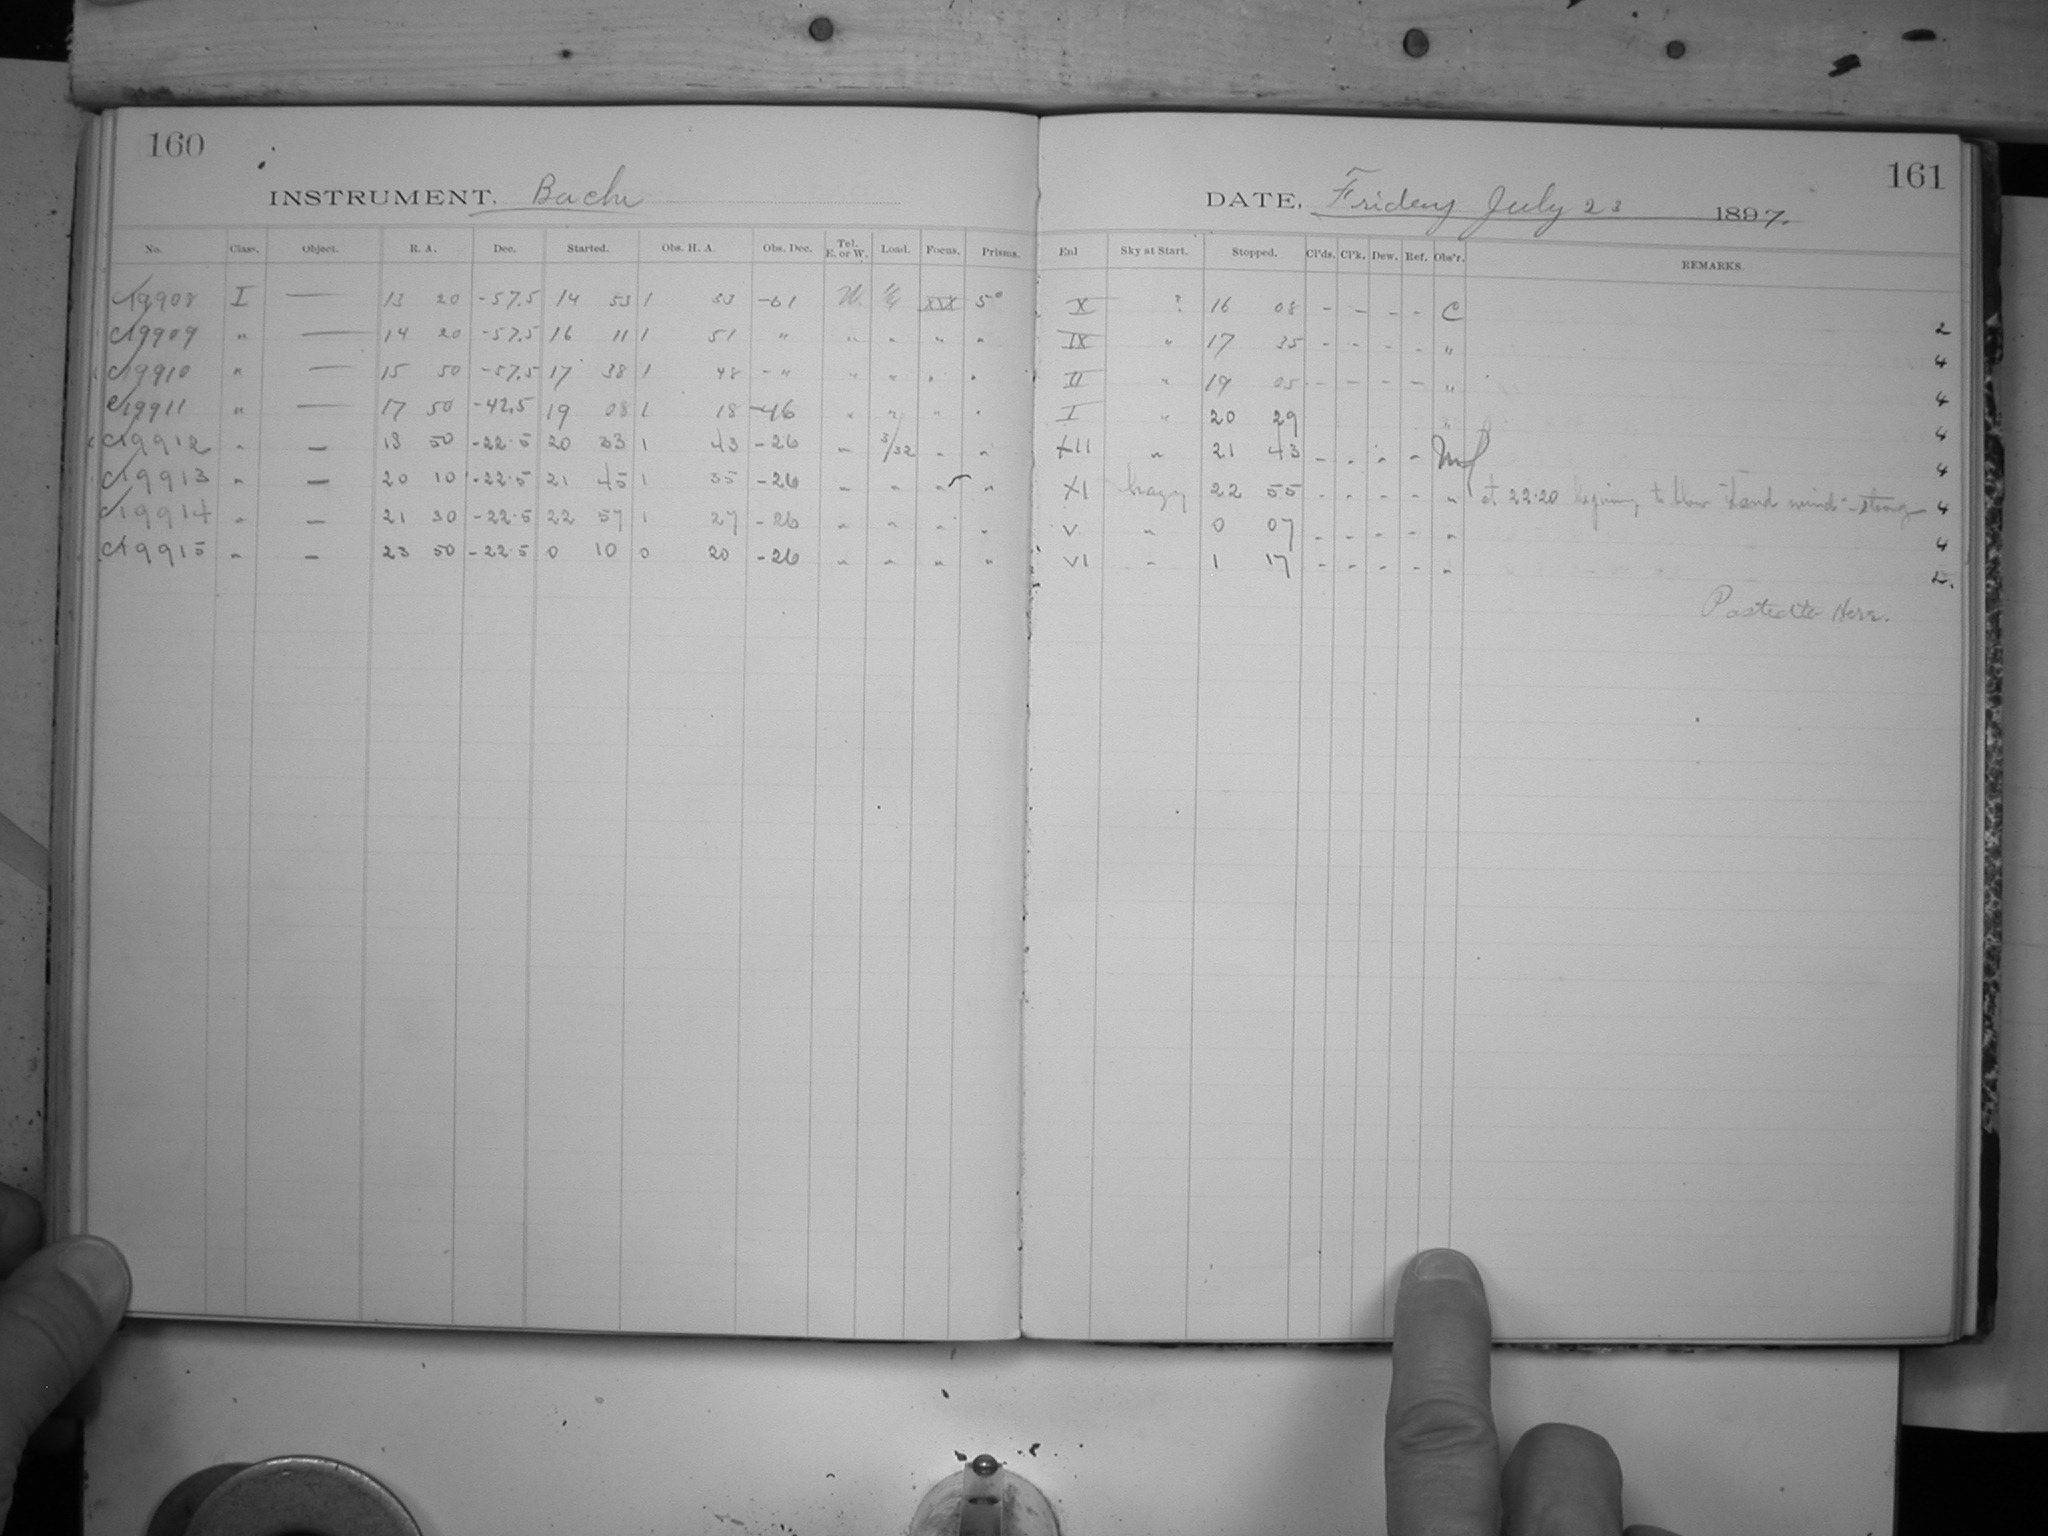 160
INSTRUMENT. Bache
No. Class. Object. R. A. Dec. Started. Obs. H. A. Obs. Dec. Tel. E. or W. Load. Focus. Prisms.
19908 I — 13 20 -57.5 14 53 1 33 -61 W. XIX 5°
19909 " — 14 20 -57.5 16 11 1 51 " " " " "
19910 " — 15 50 -57.5 17 38 1 48 -" " " " "
19911 " — 17 50 -42.5 19 08 1 18 -46 " " " "
19912 " — 18 50 -22.5 20 33 1 43 -26 " 3/32 " "
19913 " — 20 10 -22.5 21 45 1 35 -26 " " " "
19914 " — 21 30 -22.5 22 57 1 27 -26 " " " "
19915 " — 23 50 -22.5 0 10 0 20 -26 " " " "
161
DATE, Friday July 23 1897.
Enl Sky at Start. Stopped. Cl'ds. Cl'k. Dew. Ref. Obs'r. REMARKS.
X ? 16 08 - - - - C 2
IX " 17 35 - - - - " 4
II " 19 05 - - - - " 4
I " 20 29 " 4
XII " 21 43 - - - - 4
XI hazy 22 55 - - - - " at 22.20 begining to blow "Land wind" - strong 4
V " 0 07 - - - - " 4
VI " 1 17 - - - - " 2.
Posted to Here.